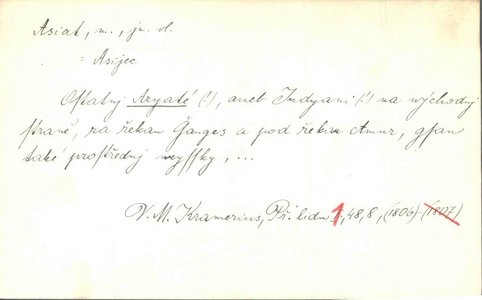 Asiat, m., jm. vl.
= Asijec
Ostatnj Azyaté (!), aneb Indyani (!) na východnj
straně, za řekau Ganges a pod řekau Amur, gsau
také prostřednj weyssky, ...
V. M. Kramerius, Př. lidu 1, 48, 8, (1806) (1807)